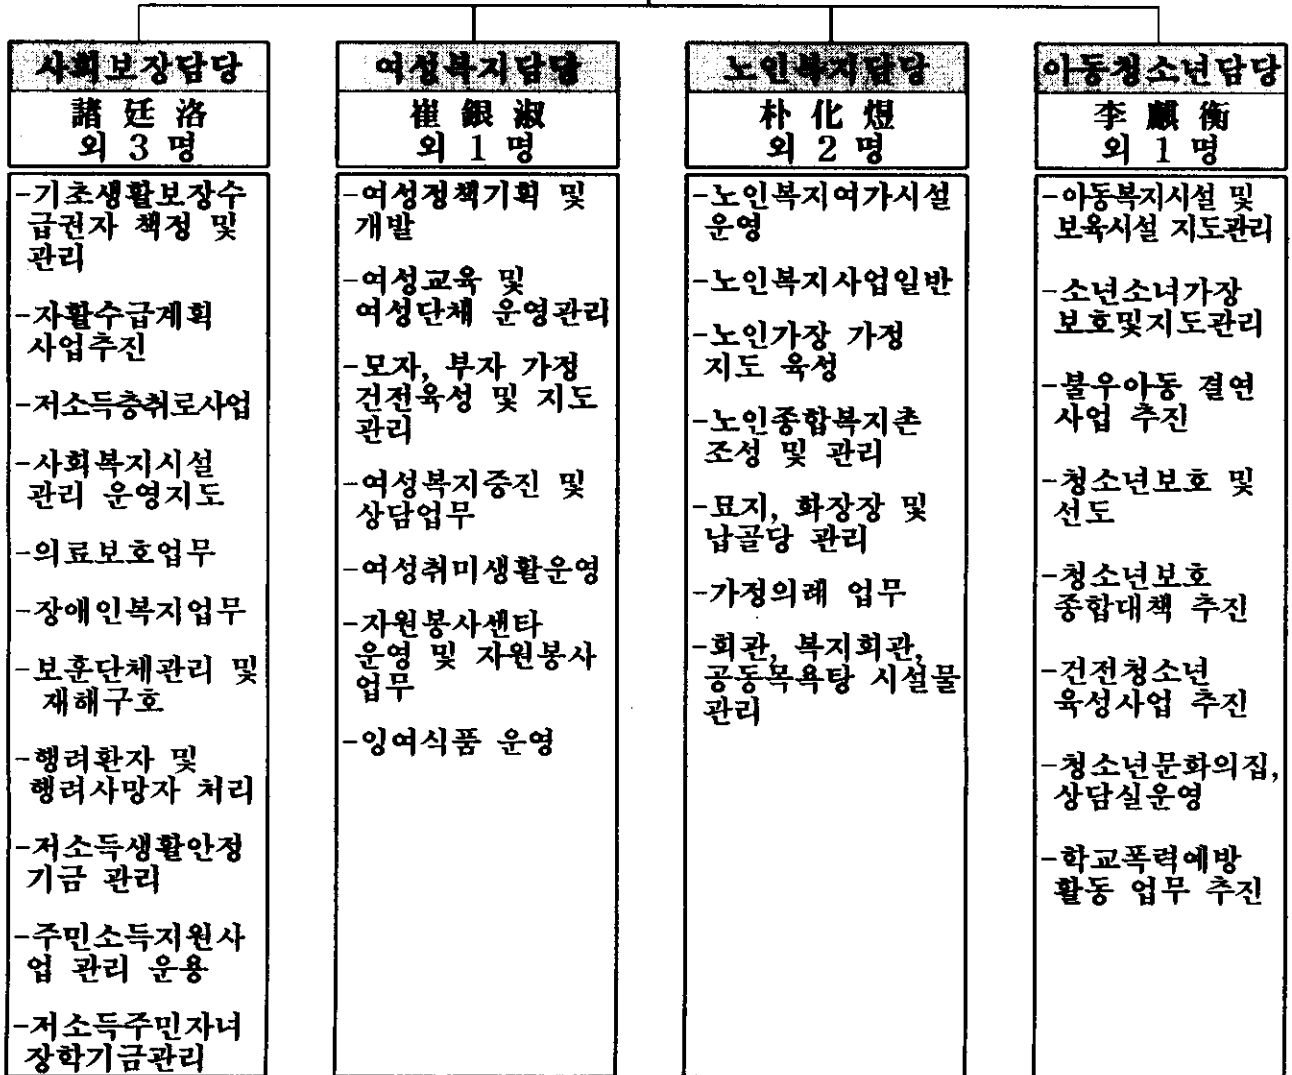 사회보장담당
諸廷洛
외 3 명
-기초생활보장수
급권자 책정 및
관리
-자활수급계획
사업추진
-저소득층취로사업
-사회복지시설
관리 운영지도
-의료보호업무
-장애인복지업무
-보훈단체관리 및
재해구호
-행려환자 및
행려사망자 처리
-저소득생활안정
기금 관리
-주민소득지원사
업 관리 운용
-저소득주민자녀
장학기금관리
여성복지담당
崔銀淑
외 1 명
-여성정책기획 및
개발
-여성교육 및
여성단체 운영관리
-모자, 부자 가정
건전육성 및 지도
관리
-여성복지증진 및
상담업무
-여성취미생활운영
-자원봉사센타
운영 및 자원봉사
업무
-잉여식품 운영
노인복지담당
朴化煜
외 2 명
-노인복지여가시설
운영
-노인복지사업일반
-노인가장 가정
지도 육성
-노인종합복지촌
조성 및 관리
-묘지, 화장장 및
납골당 관리
-가정의례 업무
-회관, 복지회관,
공동목욕탕 시설물
관리
아동청소년담당
李麒衡
외 1 명
-아동복지시설 및
보육시설 지도관리
-소년소녀가장
보호및지도관리
-불우아동 결연
사업 추진
-청소년보호 및
선도
-청소년보호
종합대책 추진
-건전청소년
육성사업 추진
-청소년문화의집,
상담실운영
-학교폭력예방
활동 업무 추진